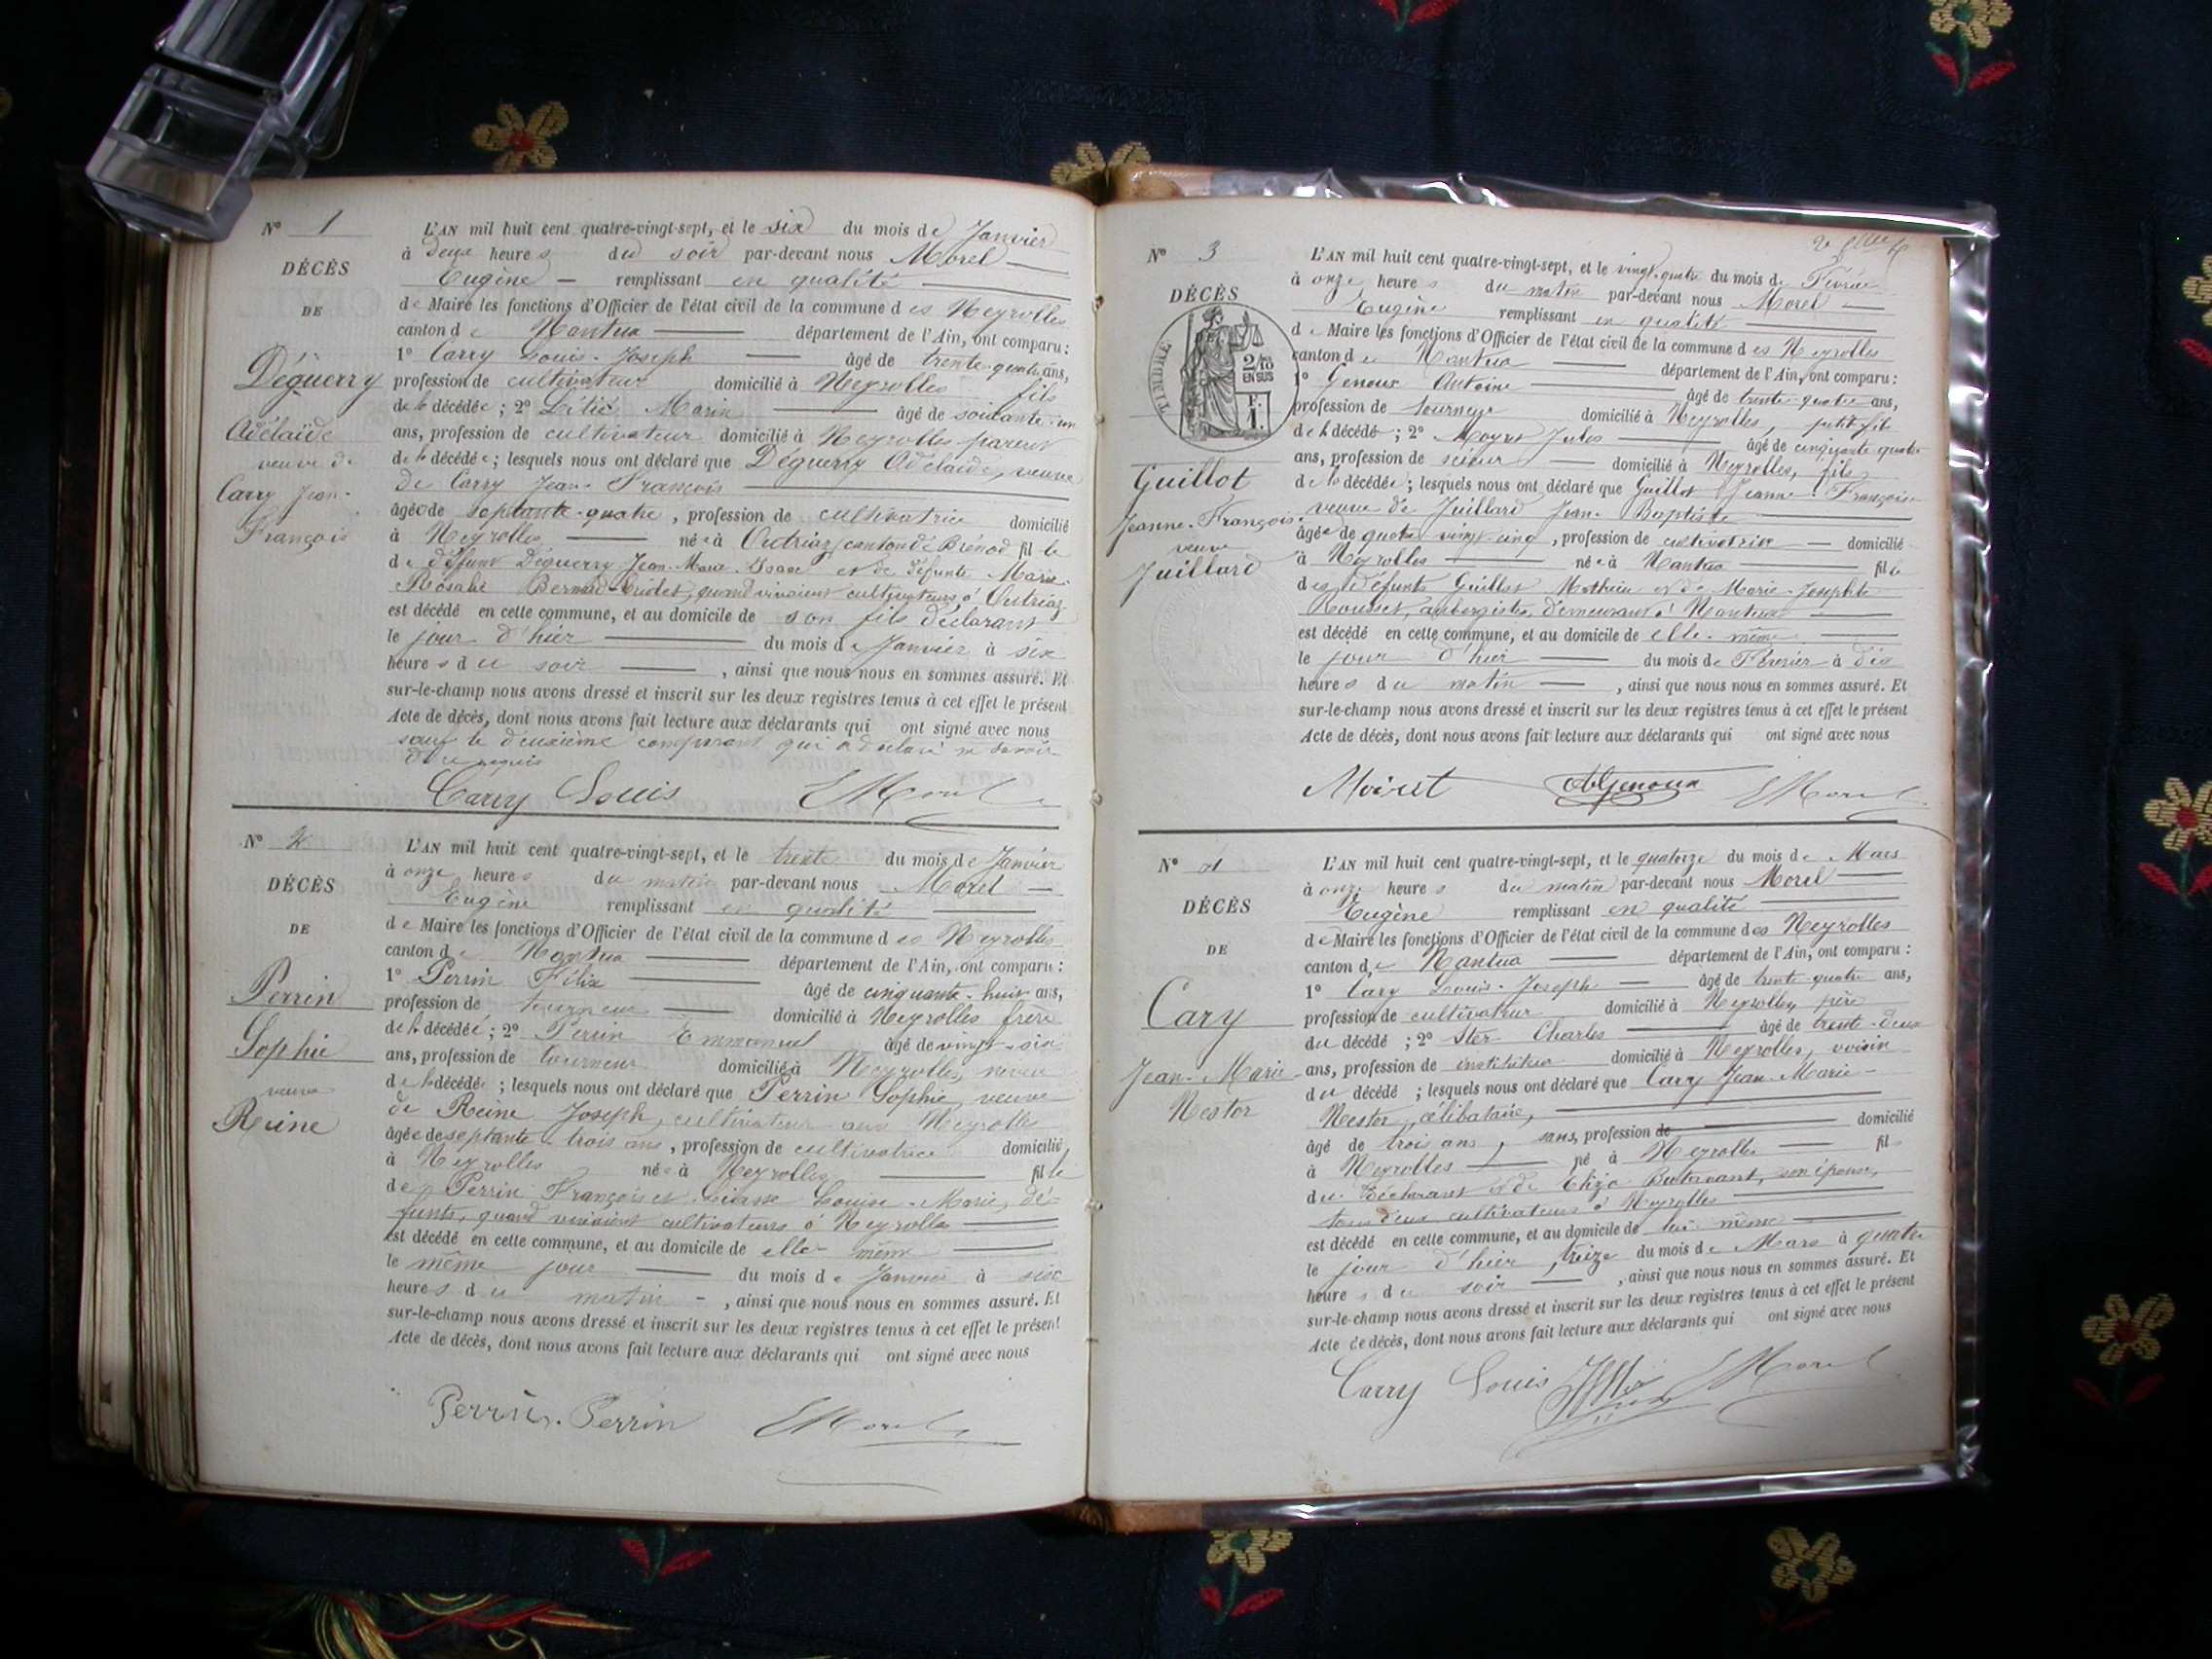 N° 1
DÉCÈS
DE
Déguerry
Adélaïde
veuve de
Carry Jean-
François
L'AN mil huit cent quatre-vingt-sept, et le six du mois de Janvier
à deux heures du soir par-devant nous Morel
Eugène remplissant en qualité
de Maire les fonctions d'Officier de l'état civil de la commune des Neyrolles
canton de Nantua département de l'Ain, ont comparu :
1° Carry Louis-Joseph âgé de trente-quatre ans,
profession de cultivateur domicilié à Neyrolles fils
de la décédée ; 2° Marin âgé de soixante-un
ans, profession de cultivateur domicilié à Neyrolles parent
de la décédée ; lesquels nous ont déclaré que Déguerry Adélaïde, veuve
de Carry Jean-François
âgée de septante-quatre, profession de cultivatrice domicilié
à Neyrolles née à Outriaz, canton de Brénod fille
de défunt Déguerry Jean-Marie-Isaac et de défunte Marie-
Rosalie quand vivaient cultivateurs à Outriaz
est décédé en cette commune, et au domicile de son fils déclarant
le jour d'hier du mois de Janvier à six
heures du soir, ainsi que nous nous en sommes assuré. Et
sur-le-champ nous avons dressé et inscrit sur les deux registres tenus à cet effet le présent
Acte de décès, dont nous avons fait lecture aux déclarants qui ont signé avec nous
sauf le deuxième comparant qui a déclaré ne savoir
de ce requis
Carry Louis EMorel
N° 2
DÉCÈS
DE
Perrin
Sophie
veuve
Reine
L'AN mil huit cent quatre-vingt-sept, et le trente du mois de Janvier
à onze heures du matin par-devant nous Morel
Eugène remplissant en qualité
de Maire les fonctions d'Officier de l'état civil de la commune des Neyrolles
canton de Nantua département de l'Ain, ont comparu :
1° Perrin Félix âgé de cinquante-huit ans,
profession de tourneur domicilié à Neyrolles frère
de la décédée ; 2° Perrin Emmanuel âgé de vingt-six
ans, profession de tourneur domicilié à Neyrolles, neveu
de la décédée ; lesquels nous ont déclaré que Perrin Sophie, veuve
de Reine Joseph, cultivateur aux Neyrolles
âgée de septante-trois ans, profession de cultivatrice domicilié
à Neyrolles née à Neyrolles fille
de Perrin François et Louise-Marie, dé-
funts, quand vivaient cultivateurs à Neyrolles
est décédé en cette commune, et au domicile de elle-même
le même jour du mois de Janvier à six
heures du matin, ainsi que nous nous en sommes assuré. Et
sur-le-champ nous avons dressé et inscrit sur les deux registres tenus à cet effet le présent
Acte de décès, dont nous avons fait lecture aux déclarants qui ont signé avec nous
Perrin. Perrin EMorel
N° 3
DÉCÈS
TIMBRE
2/10
EN SUS
F.
1.
Guillot
Jeanne-Françoise
veuve
Juillard
L'AN mil huit cent quatre-vingt-sept, et le vingt-quatre du mois de Février
à onze heures du matin par-devant nous Morel
Eugène remplissant en qualité
de Maire les fonctions d'Officier de l'état civil de la commune des Neyrolles
canton de Nantua département de l'Ain, ont comparu :
1° Genoux Antoine âgé de trente-quatre ans,
profession de tourneur domicilié à Neyrolles, petit-fils
de la décédée ; 2° Moyret Jules âgé de cinquante-quatre
ans, profession de scieur domicilié à Neyrolles, fils
de la décédée ; lesquels nous ont déclaré que Guillot Jeanne-Françoise
veuve de Juillard Jean-Baptiste
âgée de quatre-vingt-cinq, profession de cultivatrice domicilié
à Neyrolles née à Nantua fille
des défunts Guillot Mathieu et de Marie-Josephte
Rousset, aubergistes, demeurant à Nantua
est décédé en cette commune, et au domicile de elle-même
le jour d'hier du mois de Février à dix
heures du matin, ainsi que nous nous en sommes assuré. Et
sur-le-champ nous avons dressé et inscrit sur les deux registres tenus à cet effet le présent
Acte de décès, dont nous avons fait lecture aux déclarants qui ont signé avec nous
Moiret AGenoux EMorel
N° 4
DÉCÈS
DE
Cary
Jean-Marie-
Nestor
L'AN mil huit cent quatre-vingt-sept, et le quatorze du mois de Mars
à onze heures du matin par-devant nous Morel
Eugène remplissant en qualité
de Maire les fonctions d'Officier de l'état civil de la commune des Neyrolles
canton de Nantua département de l'Ain, ont comparu :
1° Cary Louis-Joseph âgé de trente-quatre ans,
profession de cultivateur domicilié à Neyrolles, père
du décédé ; 2° Ster Charles âgé de trente-deux
ans, profession de instituteur domicilié à Neyrolles, voisin
du décédé ; lesquels nous ont déclaré que Cary Jean-Marie-
Nestor, célibataire,
âgé de trois ans, sans profession de domicilié
à Neyrolles né à Neyrolles fils
du déclarant et de Eliza son épouse,
tous deux cultivateurs à Neyrolles
est décédé en cette commune, et au domicile de lui-même
le jour d'hier, treize du mois de Mars à quatre
heures du soir, ainsi que nous nous en sommes assuré. Et
sur-le-champ nous avons dressé et inscrit sur les deux registres tenus à cet effet le présent
Acte de décès, dont nous avons fait lecture aux déclarants qui ont signé avec nous
Carry Louis EMorel